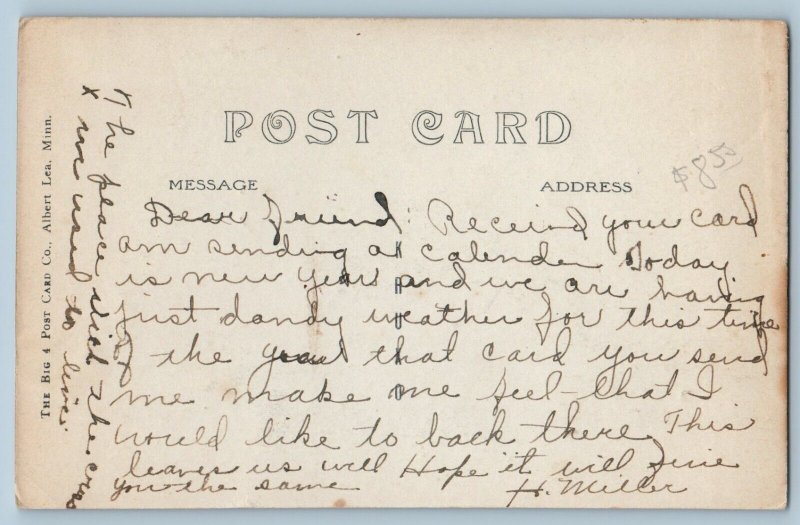 POST CARD
MESSAGE
ADDRESS
$8.50
Dear friend: Receivd your card
am sending a calender Today
is new year and we are having
just dandy weather for this time
of the year that card you send
me make me feel that I
would like to back there This
leaves us well Hope it will fine
you the same H. Miller
The place with the cross
x we used to live.
THE BIG 4 POST CARD CO., Albert Lea, Minn.